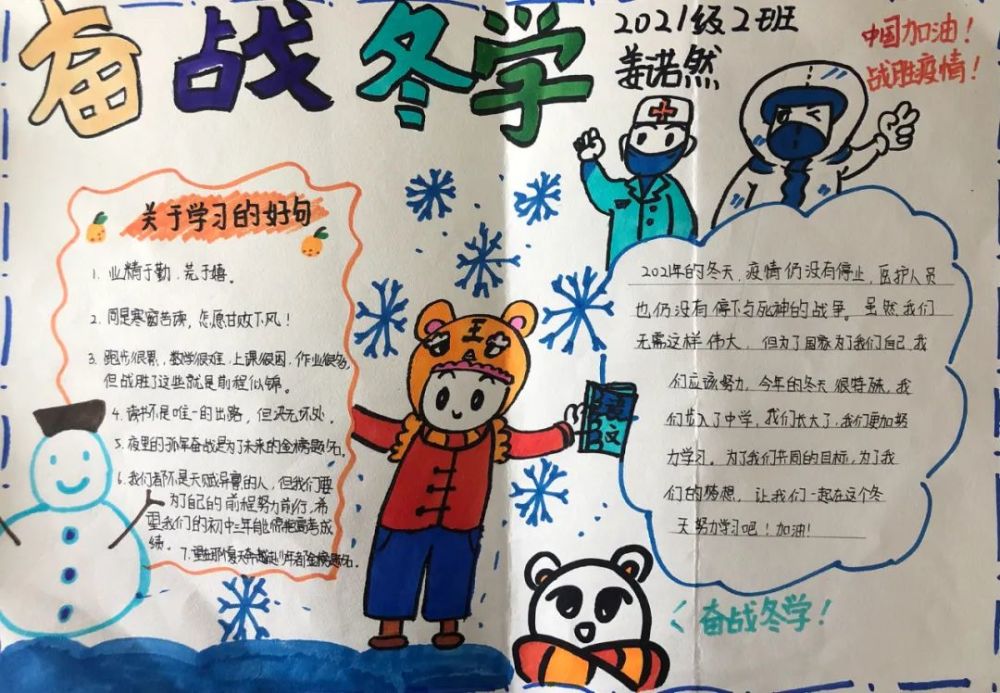 奋战冬学
2021级2班
姜诺然
中国加油！
战胜疫情！
关于学习的好句
1. 业精于勤，荒于嬉。
2. 同是寒窗苦读，怎愿甘败下风！
3. 跑步很累，数学很难，上课很困，作业很多，
但战胜了这些就是前程似锦。
4. 读书不是唯一的出路，但决无坏处。
5. 夜里的孤军奋战是为了未来的金榜题名。
6. 我们都不是天赋异禀的人，但我们要
为自己的前程努力前行，希
望我们的初中三年能
成
绩。
7.
年都金榜题名。
王
语文
2021年的冬天，疫情仍没有停止，医护人员
也仍没有停下与死神的战争。虽然我们
无需这样伟大，但为了国家为了我们自己，我
们应该努力，今年的冬天很特殊，我
们步入了中学，我们长大了，我们更加努
力学习。为了我们共同的目标，为了我
们的梦想，让我们一起在这个冬
天努力学习吧！加油！
奋战冬学！